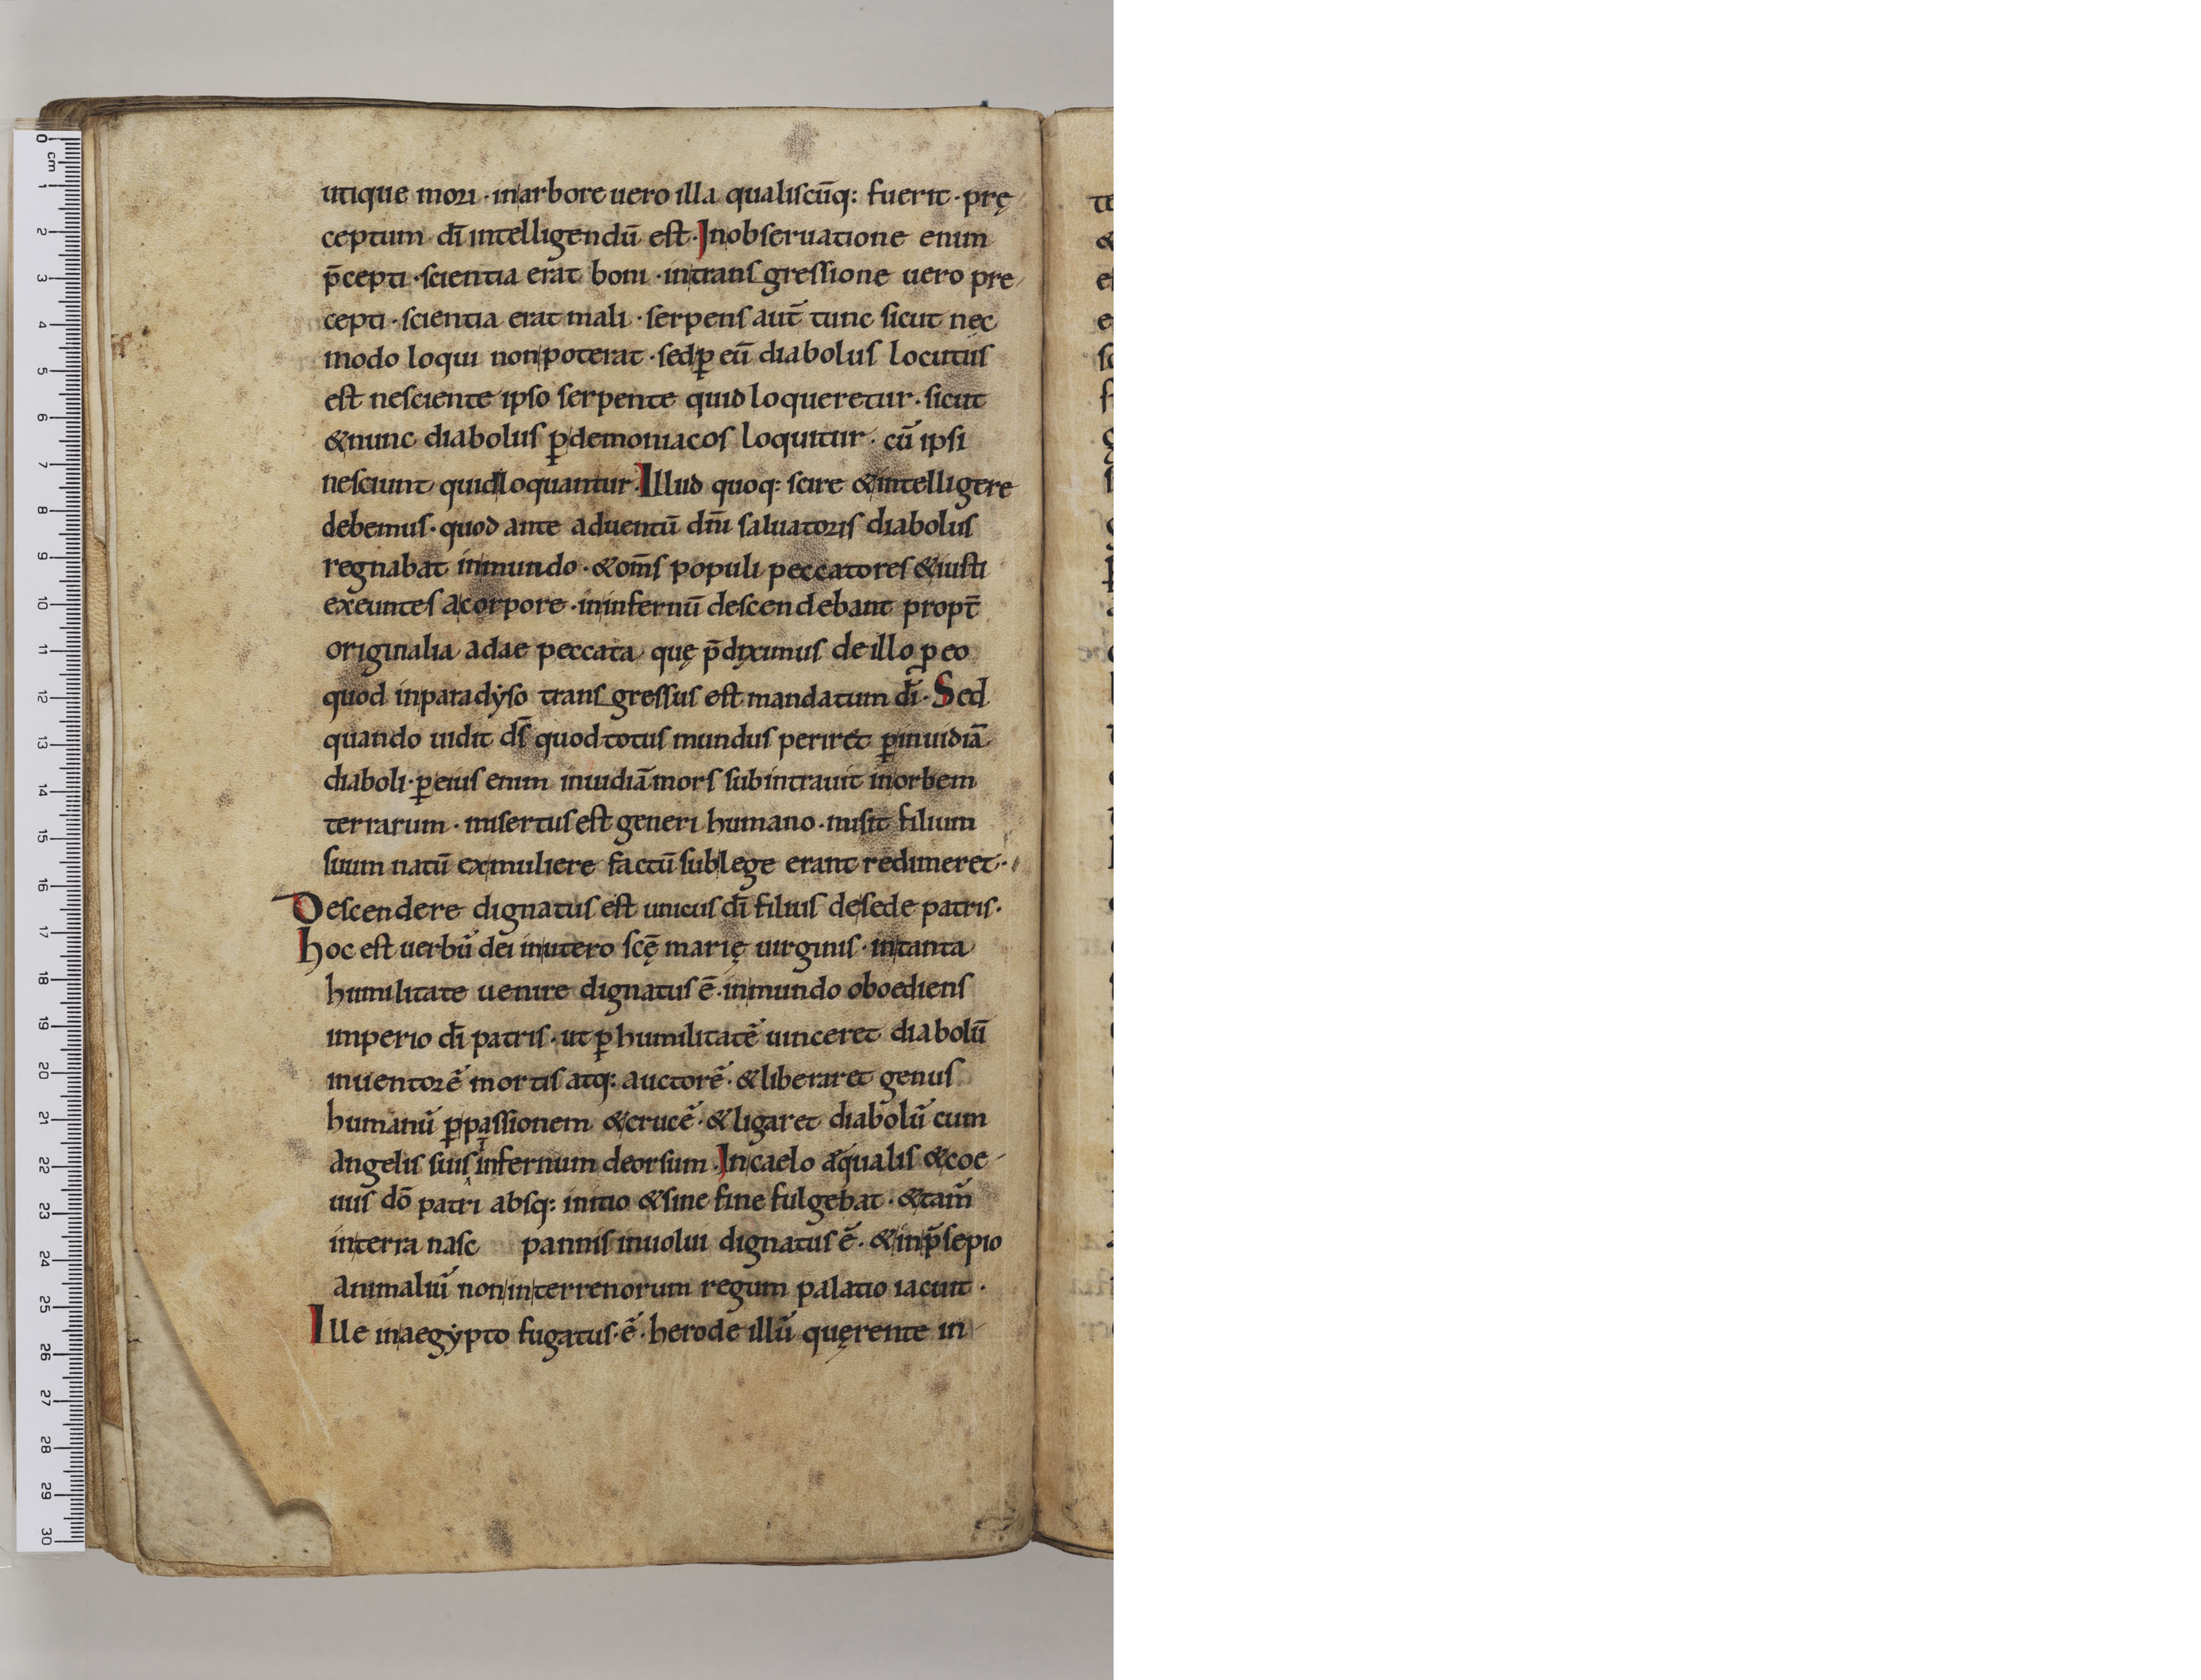 utique mori · inarbore uero illa qualiscūq: fuerit · prę
ceptum dī intelligendū est · Inobseruatione enim
p̄cepti · scientia erat boni · intransgressione uero pre
cepti · scientia erat mali · serpens aut̄ tunc sicut nec
modo loqui nonpoterat · sedꝑ eū diabolus locutus
est nesciente ipso serpente quid loqueretur · sicut
&nunc diabolus ꝑdemoniacos loquitur · cū ipsi
nesciunt quidloquantur · Illud quoq: scire &intelligere
debemus · quod ante aduentū dn̄i saluatoris diabolus
regnabat inmundo · &om̄s populi peccatores &iusti
exeuntes acorpore · ininfernū descendebant propt̄
originalia adae peccata quę p̄diximus deillo ꝑ eo
quod inparadẏso transgressus est mandatum dī · Sed
quando uidit ds̄ quod totus mundus periret ꝑinuidiā
diaboli · ꝑ eius enim inuidiā mors subintrauit inorbem
terrarum · misertus est generi humano · misit filium
suum natū exmuliere factū sublege erant redimeret ·
Descendere dignatus est unicus dī filius desede patris ·
hoc est uerbū dei inutero scę̄ marię uirginis · intanta
humilitate uenire dignatus ē · inmundo oboediens
imperio dī patris · ut ꝑ humilitatē uinceret diabolū
inuentorē mortis atq: auctorē · &liberaret genus
humanū ꝑpassionem &crucē · &ligaret diabolū cum
angelis suis infernum deorsum · Incaelo aequalis &coe
uus dō patri absq: initio &sine fine fulgebat · &tam̄
interra nasc pannis inuolui dignatus ē · &inp̄sepio
animaliū noninterrenorum regum palatio iacuit ·
Ille inaegẏpto fugatus · ē · herode illū quęrente in